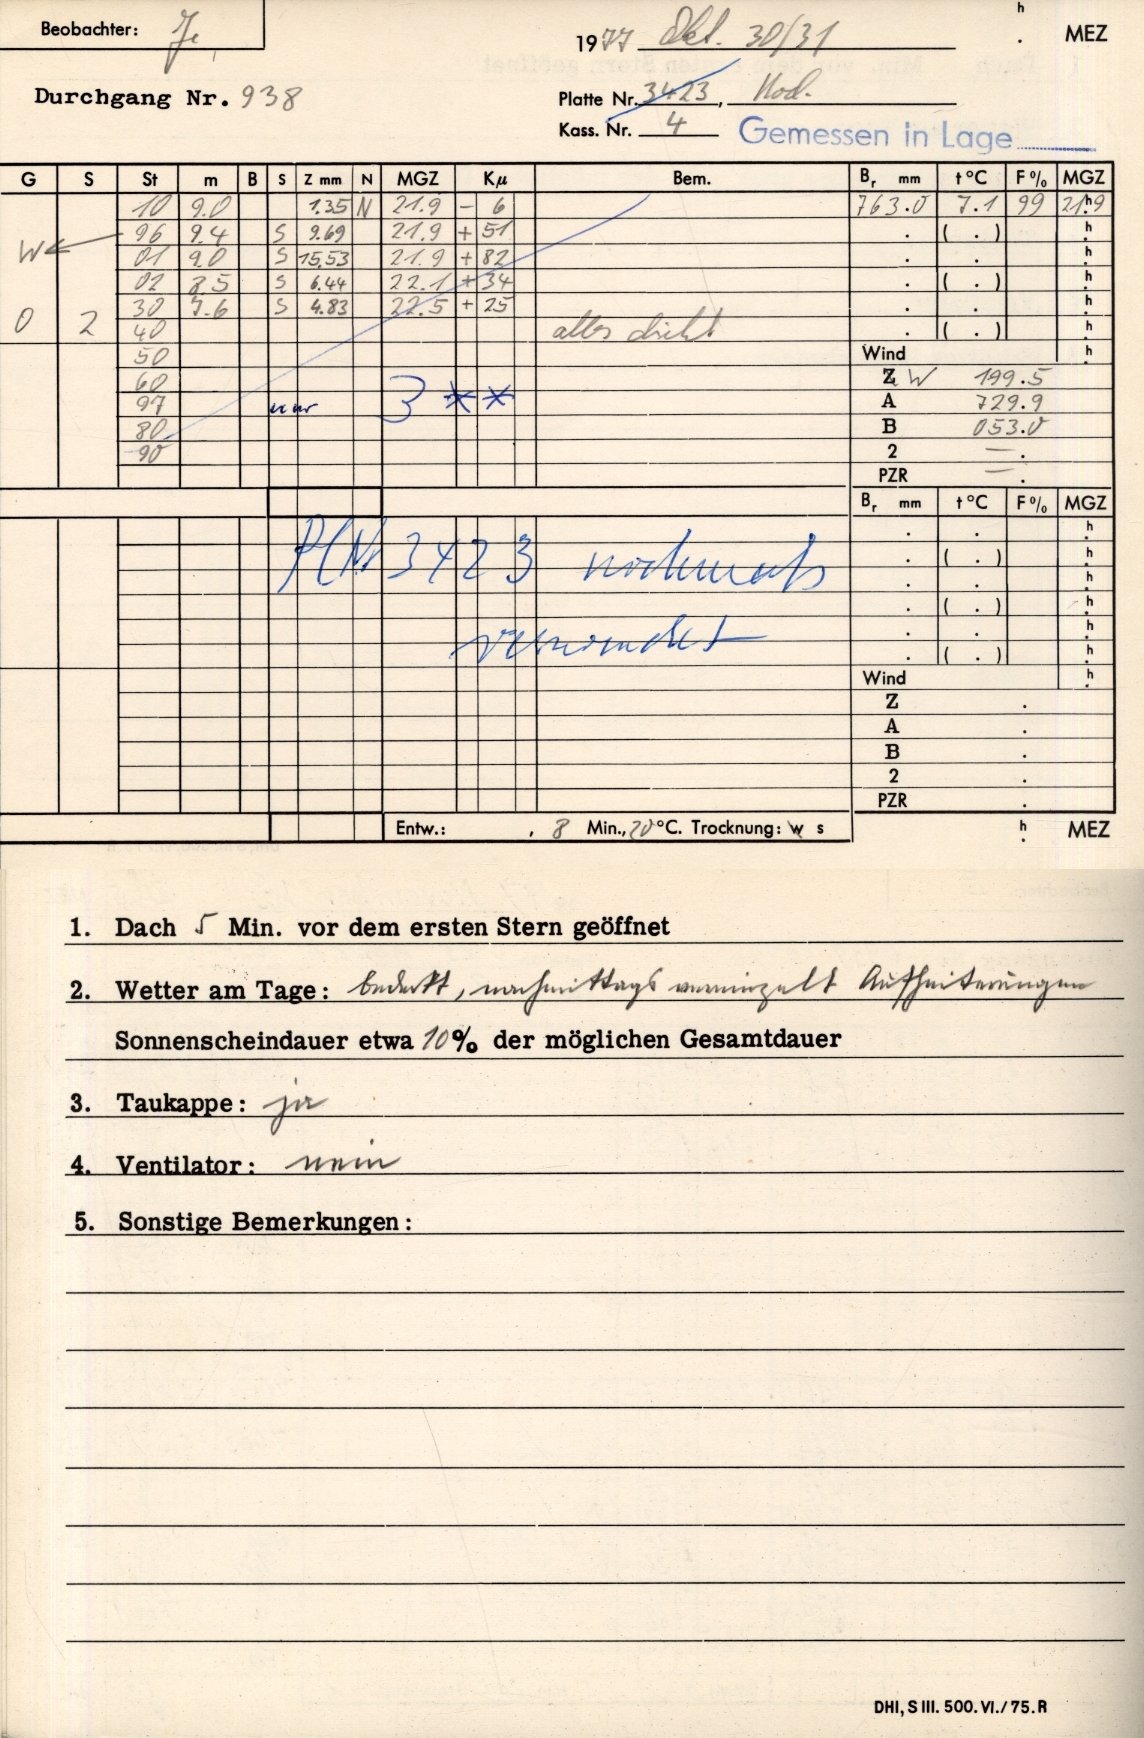 Beobachter: Je
1977 Okt. 30/31 h . MEZ
Durchgang Nr. 938
Platte Nr. 3423, Kod.
Kass. Nr. 4 Gemessen in Lage
G S St m B S Z mm N MGZ Kμ Bem. Br mm t°C F% MGZ
10 9.0 1.35 N 21.9 - 6 763.0 7.1 99 21.9 h
W 96 9.4 S 9.69 21.9 + 51 . ( . ) h
01 9.0 S 15.53 21.9 + 82 . . h
02 8.5 S 6.44 22.1 + 34 . ( . ) h
30 7.6 S 4.83 22.5 + 25 . . h
0 2 40 alles dicht . ( . ) h
50 Wind h
60 Z W 199.5
97 nur 3 ** A 729.9
80 B 053.0
90 2 — .
PZR — .
Br mm t°C F% MGZ
. . h
Pl Nr 3423 nochmals . ( . ) h
. . h
. ( . ) h
verwendet . . h
. ( . ) h
Wind h
Z .
A .
B .
2 .
PZR .
Entw.: , 8 Min., 20°C. Trocknung: w s h . MEZ
1. Dach 5 Min. vor dem ersten Stern geöffnet
2. Wetter am Tage: bedeckt, nachmittags vereinzelt Aufheiterungen
Sonnenscheindauer etwa 10% der möglichen Gesamtdauer
3. Taukappe: ja
4. Ventilator: nein
5. Sonstige Bemerkungen:
DHI, S III. 500. VI./75. R